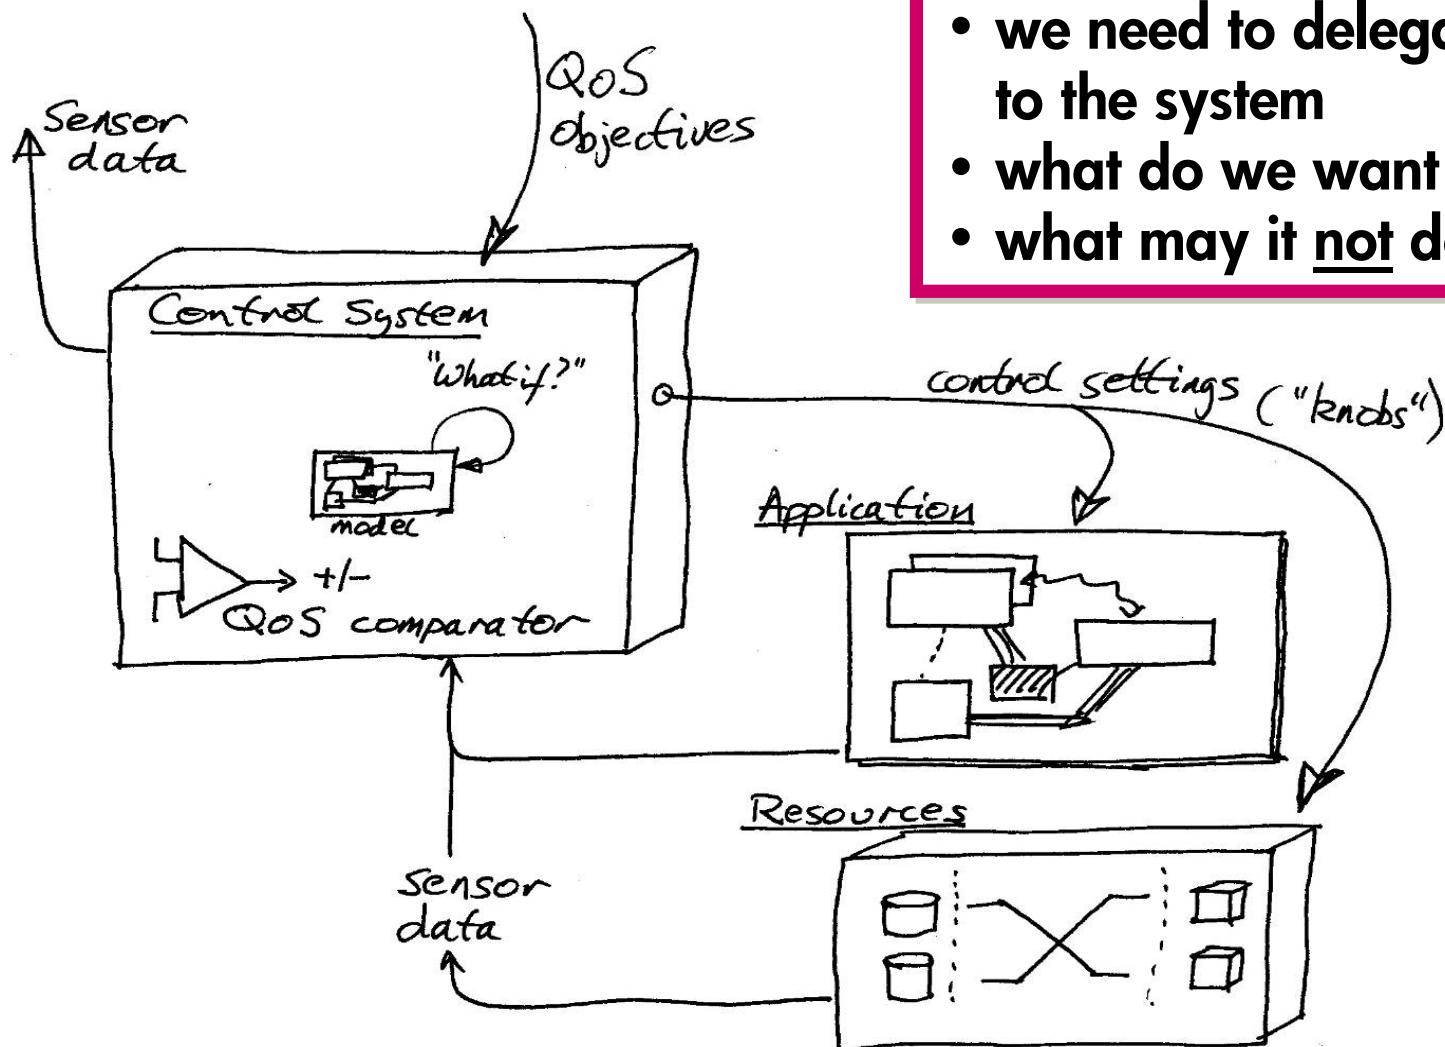 • we need to delega
to the system
• what do we want
• what may it not d
QoS
objectives
Sensor
data
Control System
"What if?"
model
+/-
QoS comparator
control settings ("knobs")
Application
Resources
Sensor
data